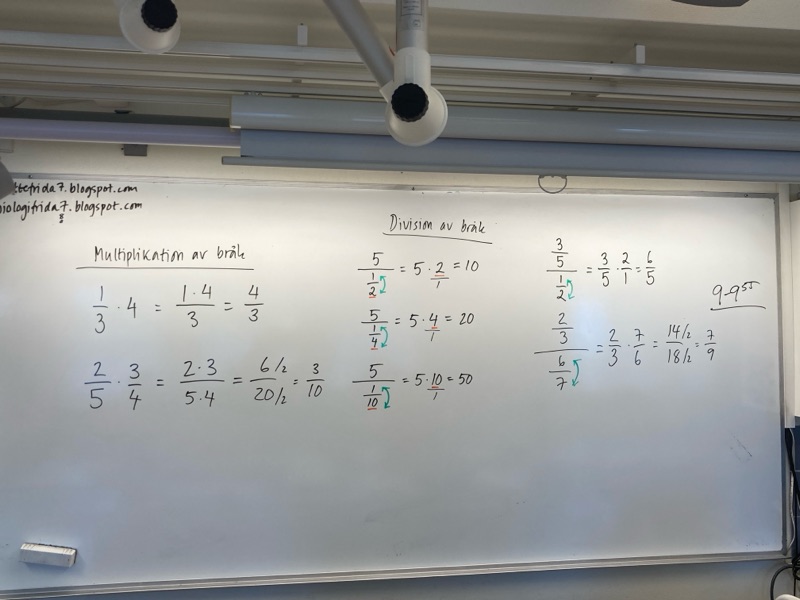 ttefrida7.blogspot.com
biologifrida7.blogspot.com
8
Multiplikation av bråk
1/3 · 4 = 1·4/3 = 4/3
2/5 · 3/4 = 2·3/5·4 = 6/2/20/2 = 3/10
Division av bråk
5/(1/2) = 5 · 2/1 = 10
5/(1/4) = 5 · 4/1 = 20
5/(1/10) = 5 · 10/1 = 50
(3/5)/(1/2) = 3/5 · 2/1 = 6/5
(2/3)/(6/7) = 2/3 · 7/6 = 14/2/18/2 = 7/9
9-9⁵⁵